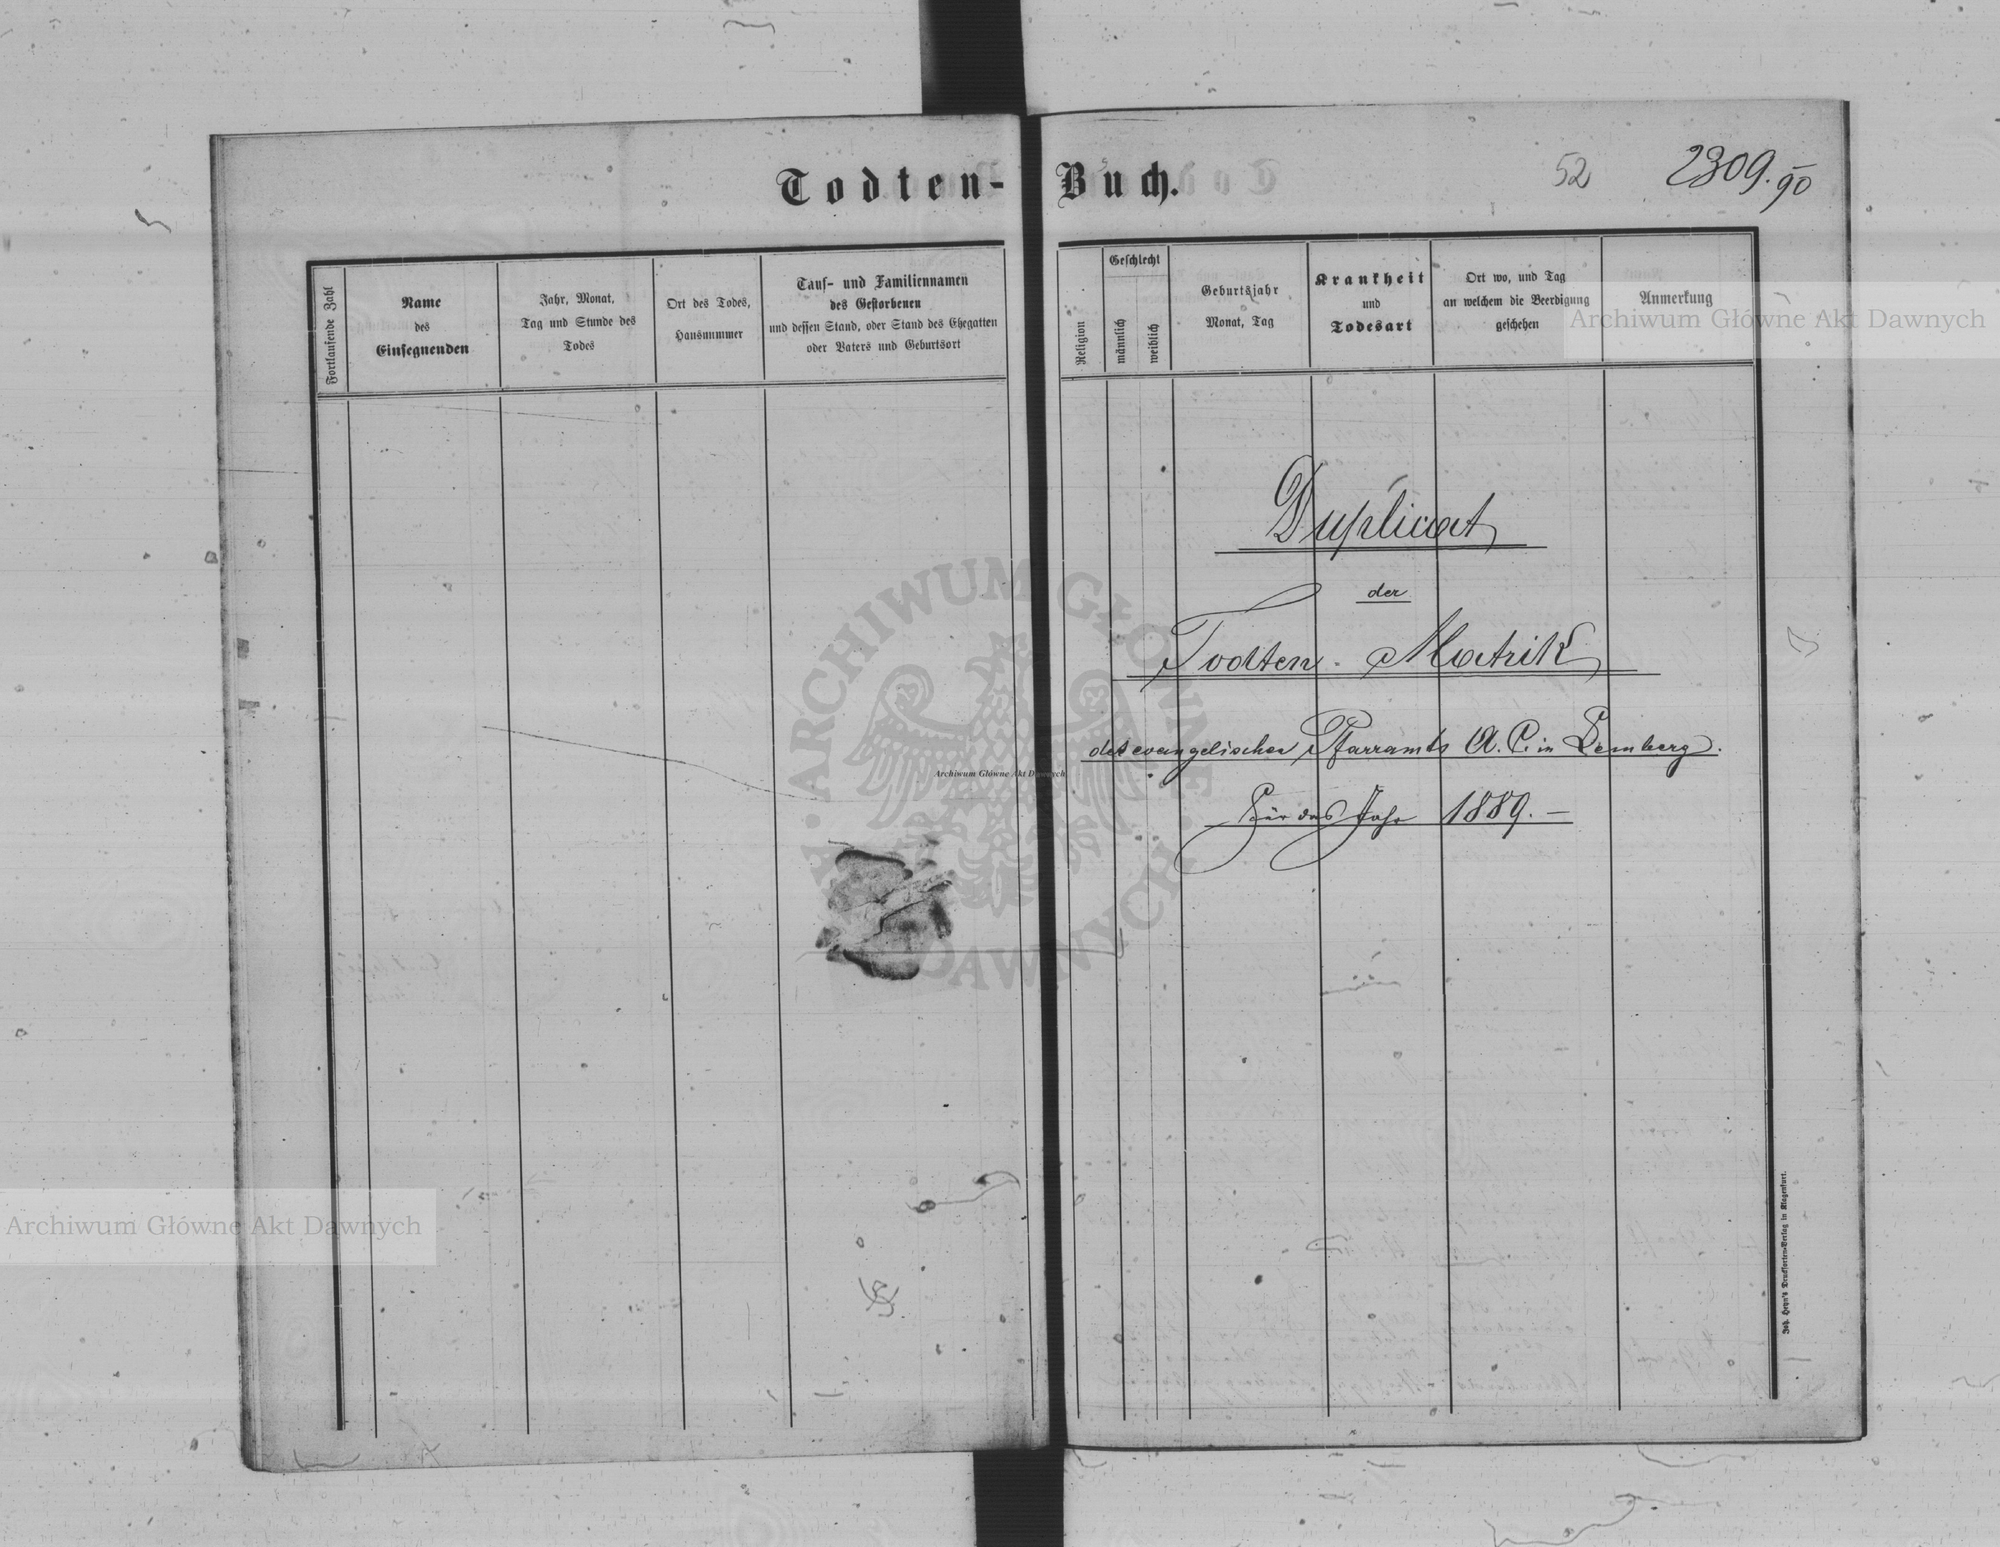 Todten-
Fortlaufende Zahl
Name
des
Einsegnenden
Jahr, Monat,
Tag und Stunde des
Todes
Ort des Todes,
Hausnummer
Tauf- und Familiennamen
des Gestorbenen
und dessen Stand, oder Stand des Ehegatten
oder Vaters und Geburtsort
Buch.
52
2309.90
Religion
Geschlecht
männlich
weiblich
Geburtsjahr
Monat, Tag
Krankheit
und
Todesart
Ort wo, und Tag
an welchem die Beerdigung
geschehen
Anmerkung
Archiwum Główne Akt Dawnych
Duplicat
der
Todten-Matrik
des evangelischen Pfarramts A. C. in Lemberg.
Für das Jahr 1889. —
ARCHIWUM GŁÓWNE AKT DAWNYCH
Archiwum Główne Akt Dawnych
Archiwum Główne Akt Dawnych
Joh. Heyn's Drucksorten-Verlag in Klagenfurt.